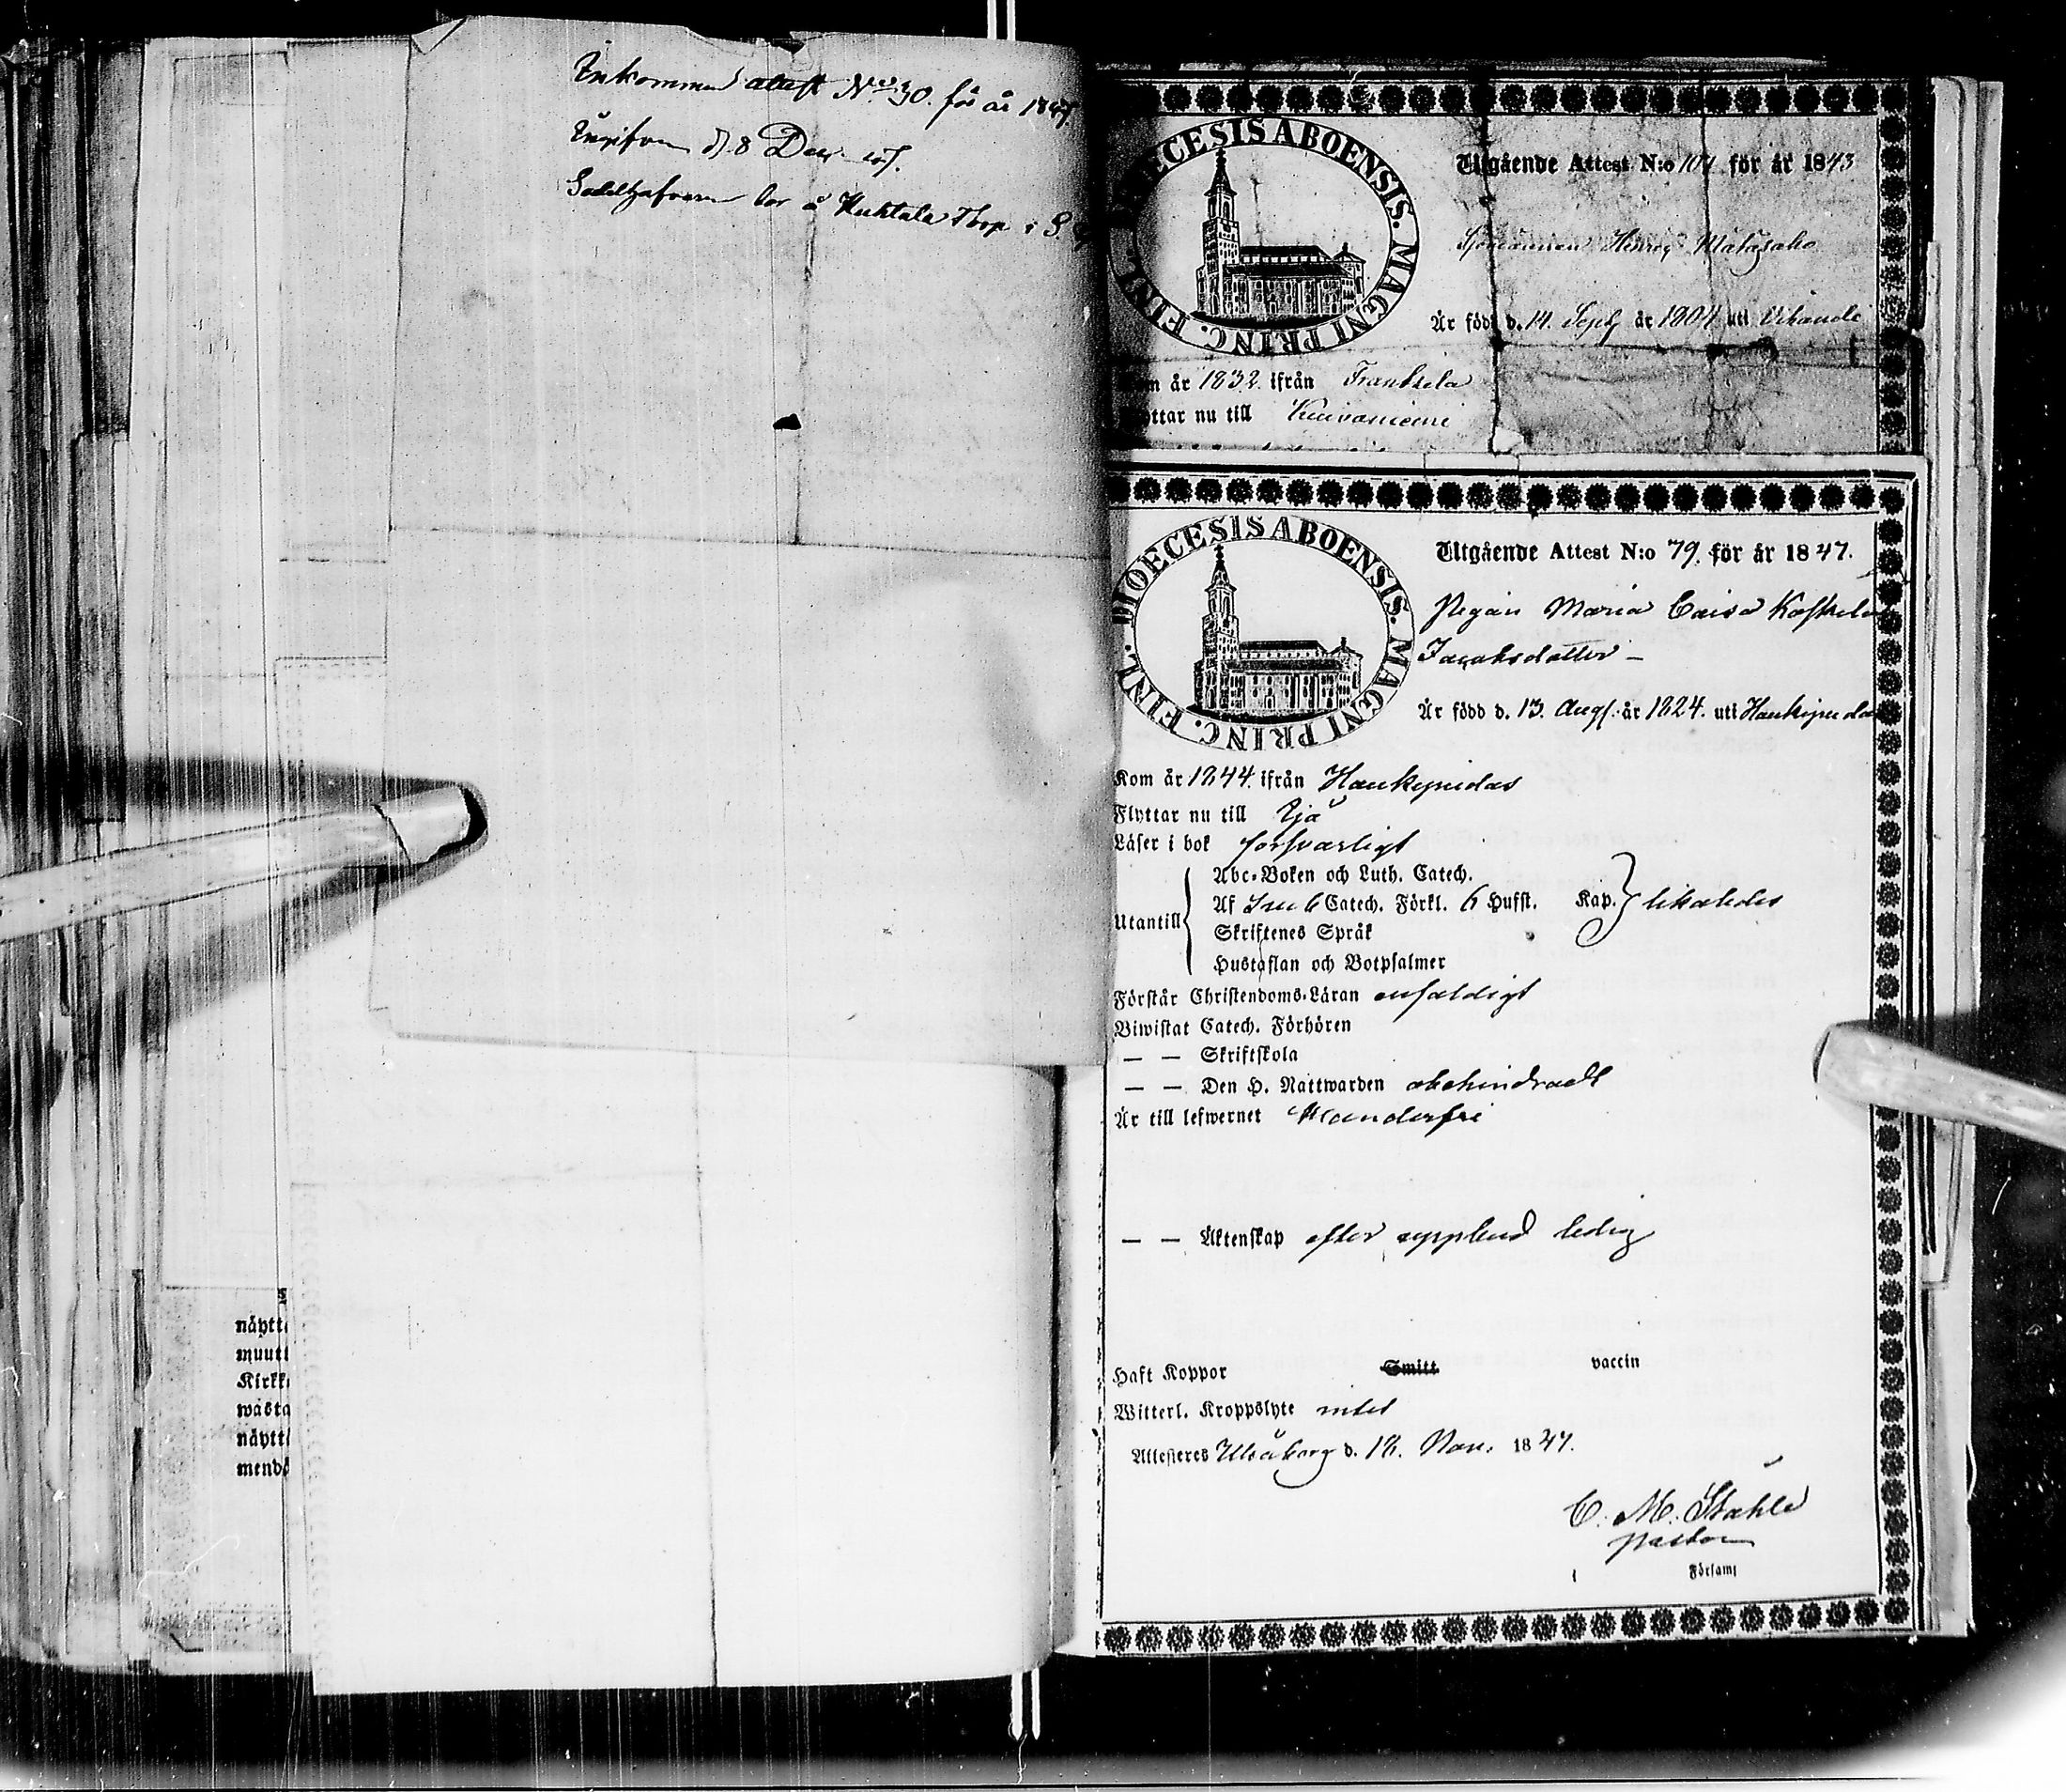 Inkommen attest No 30. för år 1847
d. 8 Dec.
bor å Huhtala Thorp i S.
näytt
muutt
Kirkk
wasta
näytt
mend
DIOECESIS ABOENSIS. MAGNI PRINC. FINL.
Utgående Attest N:o 104 för år 1843
Henric Mätäsaho
Är född d. 14. Sept. år 1804 uti Vihandi
år 1832. ifrån Frantsila
ttar nu till Kuivaniemi
DIOECESIS ABOENSIS. MAGNI PRINC. FINL.
Utgående Attest N:o 79. för år 1847.
Pigan Maria Caisa Koskela
Jacobsdotter –
Är född d. 13. Aug. år 1824. uti Haukipudas
Kom år 1844. ifrån Haukipudas
Flyttar nu till Ijå
Läser i bok försvarligt
Utantill
Abc-Boken och Luth. Catech.
Af Catech. Förkl. 6 Hufst. Kap. likaledes
Skriftenes Språk
Hustaflan och Botpsalmer
Förstår Christendoms-Läran enfaldigt
Biwistat Catech. Förhören
— — Skriftskola
— — Den H. Nattwarden obehindradt
Är till lefwernet klanderfri
— — Äktenskap efter upplyst ledig
Haft Koppor Smitt vaccin
Witterl. Kroppslyte intet
Attesteres Uleåborg d. 18. Nov. 1847.
C. M. Ståhle
Pastor
Församl